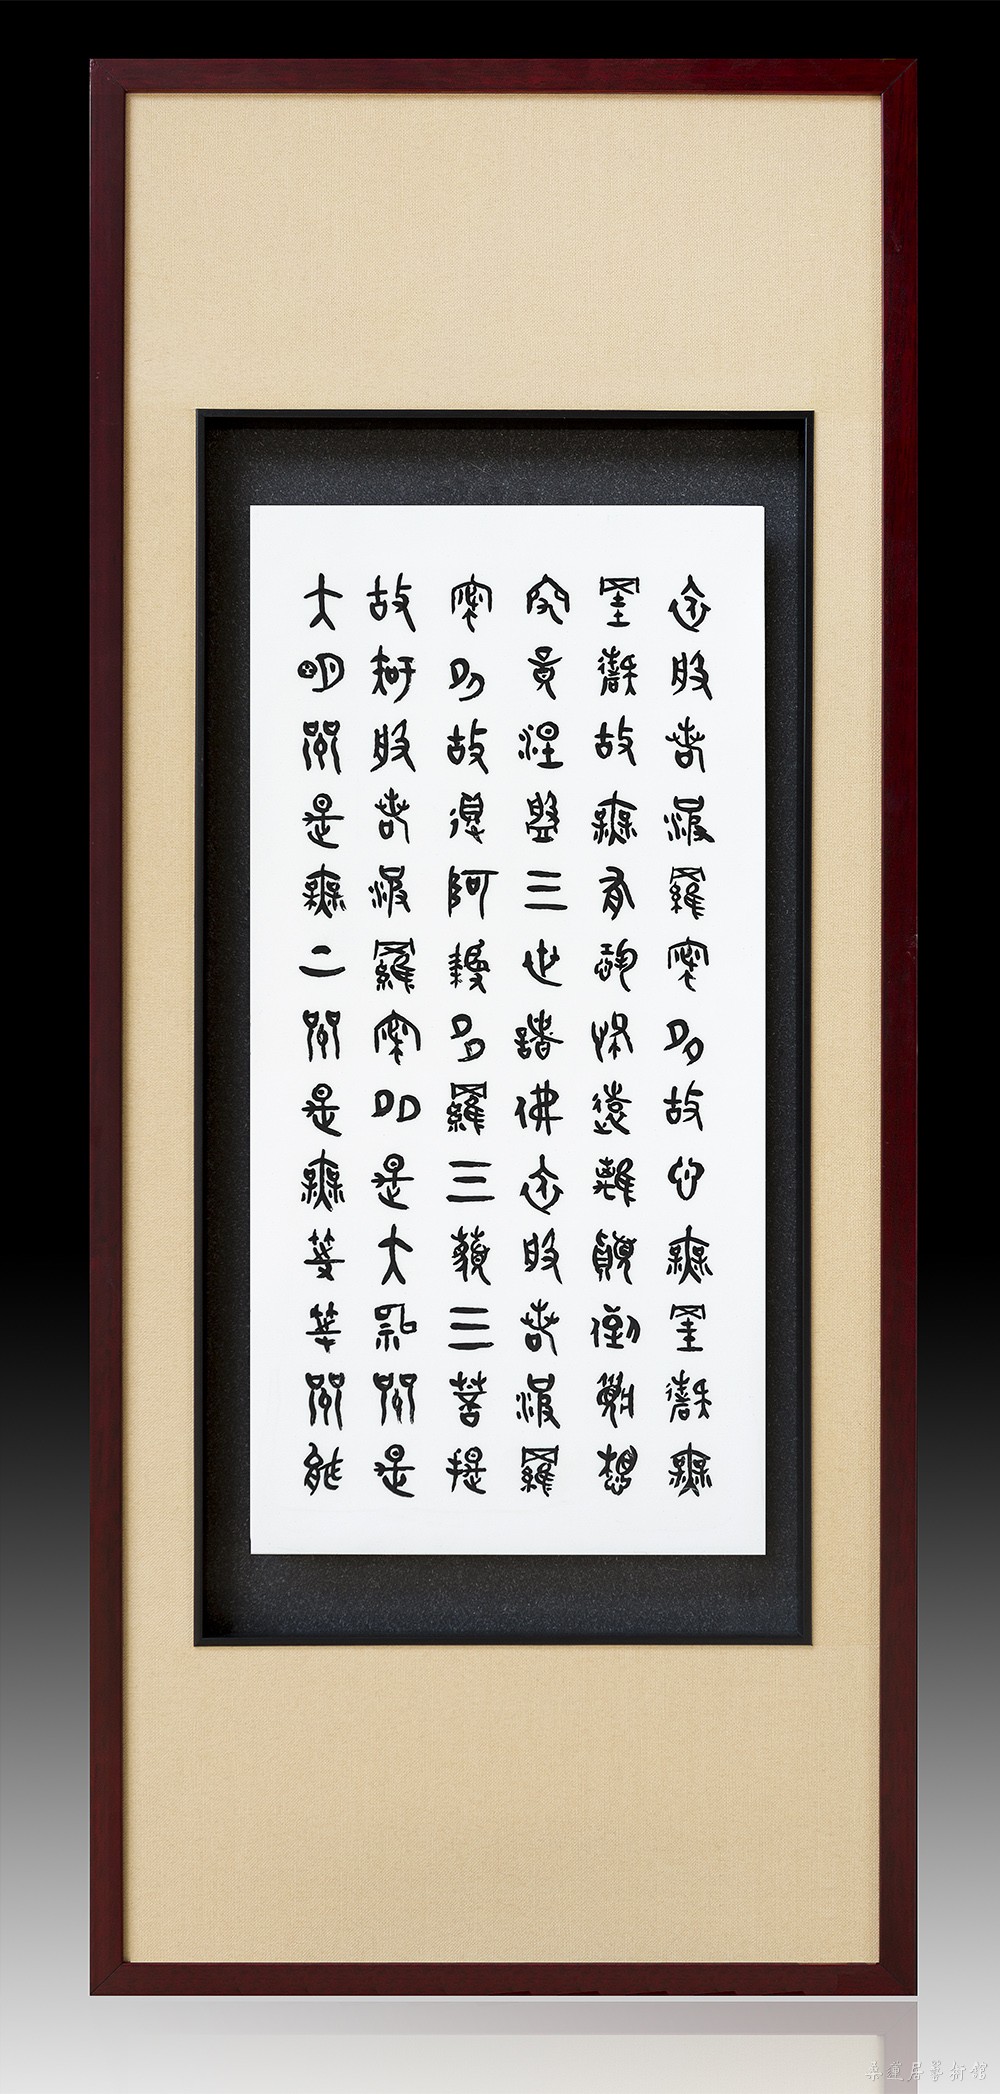 依般若波羅蜜多故心無罣礙無
罣礙故無有恐怖遠離顛倒夢想
究竟涅盤三世諸佛依般若波羅
蜜多故得阿耨多羅三藐三菩提
故知般若波羅蜜多是大神咒是
大明咒是無上咒是無等等咒能
桑蓮居藝術館